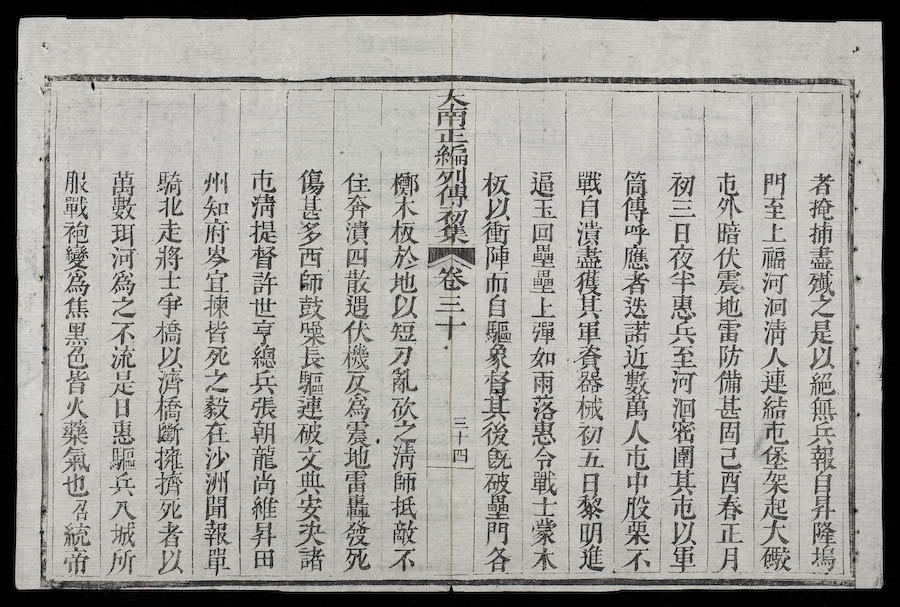 者掩捕盡殲之是以絕無兵報自昇隆塢
門至上福河洄淸人連結屯堡架起大礮
屯外暗伏震地雷防備甚固己酉春正月
初三日夜半惠兵至河洄密圍其屯以軍
筒傳呼應者迭諾近數萬人屯中股栗不
戰自潰盡獲其軍資器械初五日黎明進
逼玉回壘壘上彈如雨落惠令戰士蒙木
板以衝陣而自驅象督其後旣破壘門各
大南正編列傳初集 卷三十 三十四
擲木板於地以短刀亂砍之淸師抵敵不
住奔潰四散遇伏機反爲震地雷轟發死
傷甚多西師鼓噪長驅連破文典安決諸
屯淸提督許世亨總兵張朝龍尚維昇田
州知府岑宜棟皆死之毅在沙洲聞報單
騎北走將士爭橋以濟橋斷擁擠死者以
萬數珥河爲之不流是日惠驅兵入城所
服戰袍變爲焦黑色皆火藥氣也召統帝